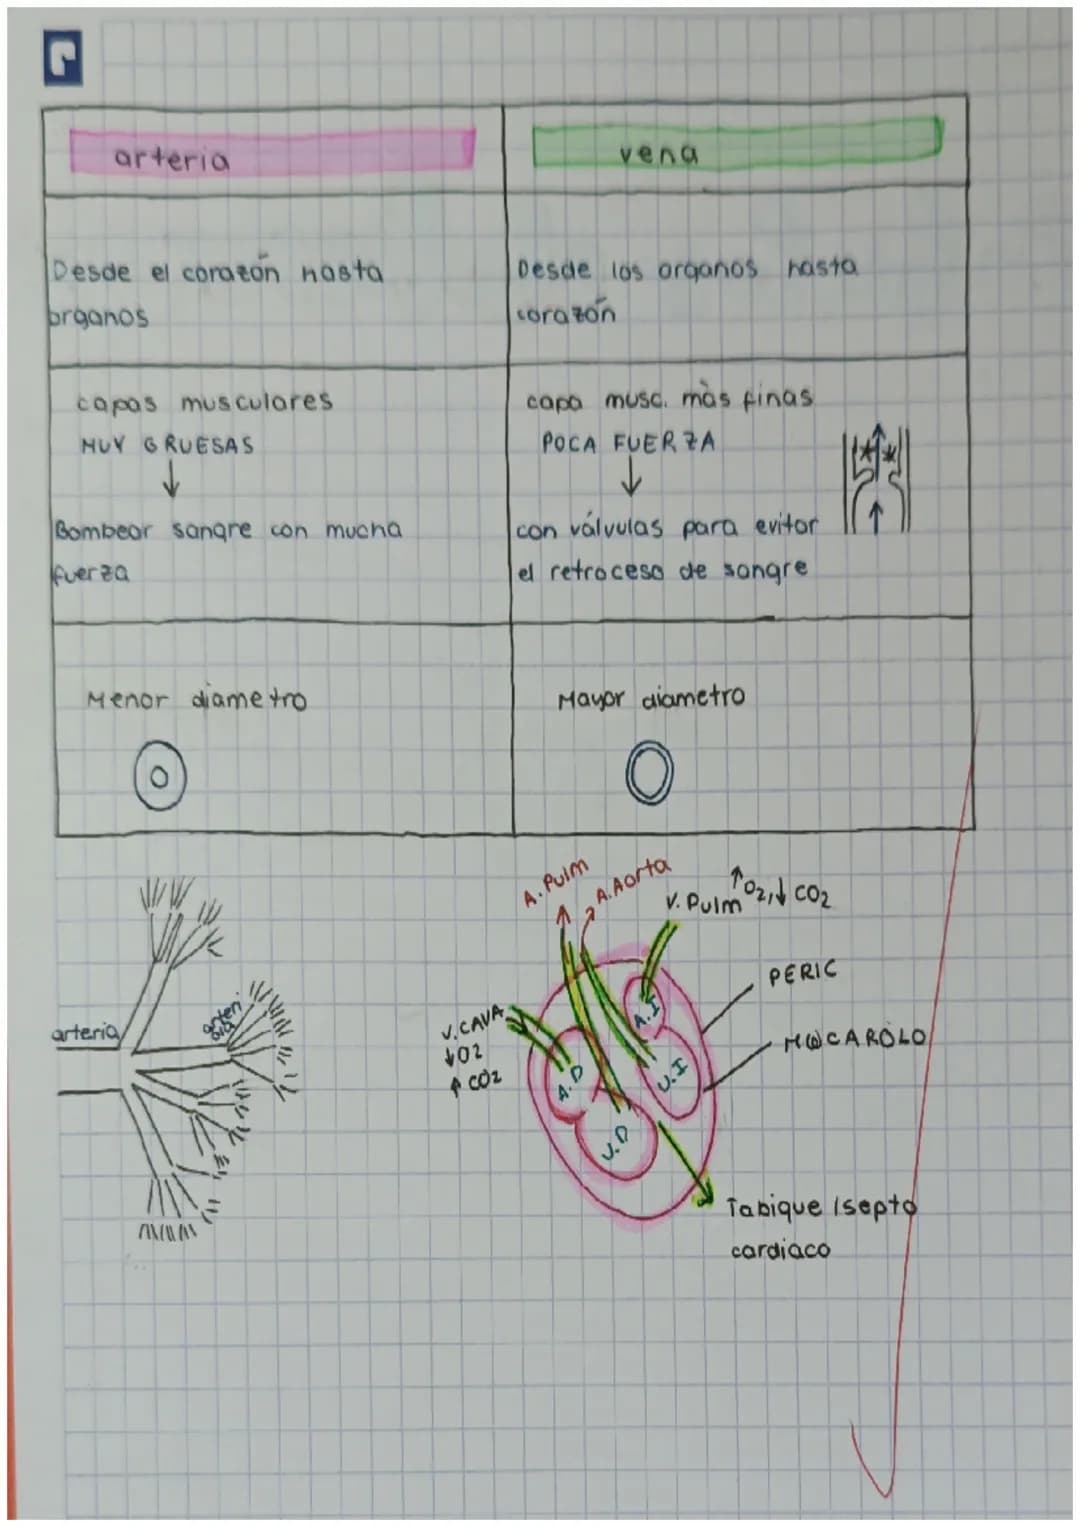 arteria
vena
Desde el corazón hasta
organos
Desde los organos hasta
corazón
capas musculares
MUY GRUESAS
↓
Bombear sangre con mucha
fuerza
capa musc. màs finas
POCA FUERZA
↓
con válvulas para evitar
el retroceso de sangre
Menor diametro
Mayor diametro
arteria
arteri
ola
A. Pulm
A. Aorta
V. Pulm ↑O2, ↓CO2
V. CAVA
↓O2
↑CO2
A.D
A.I
V.D
V.I
PERIC
Tabique / septo
cardiaco